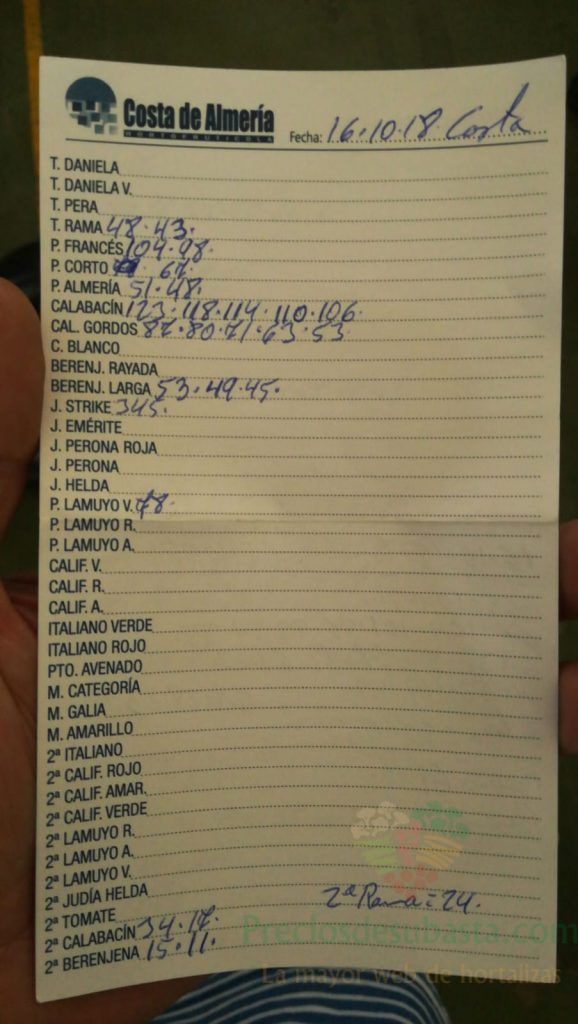 Costa de Almería
HORTOFRUTICOLA
Fecha: 16.10.18 Costa
T. DANIELA
T. DANIELA V.
T. PERA
T. RAMA 48.43.
P. FRANCÉS 104.98.
P. CORTO 67.
P. ALMERÍA 51.48.
CALABACÍN 123.118.114.110.106
CAL. GORDOS 87.80.71.63.53
C. BLANCO
BERENJ. RAYADA
BERENJ. LARGA 53.49.45.
J. STRIKE 345.
J. EMÉRITE
J. PERONA ROJA
J. PERONA
J. HELDA
P. LAMUYO V. 78.
P. LAMUYO R.
P. LAMUYO A.
CALIF. V.
CALIF. R.
CALIF. A.
ITALIANO VERDE
ITALIANO ROJO
PTO. AVENADO
M. CATEGORÍA
M. GALIA
M. AMARILLO
2ª ITALIANO
2ª CALIF. ROJO
2ª CALIF. AMAR.
2ª CALIF. VERDE
2ª LAMUYO R.
2ª LAMUYO A.
2ª LAMUYO V.
2ª JUDÍA HELDA
2ª TOMATE 2ª Rama = 24.
2ª CALABACÍN 34.17.
2ª BERENJENA 15.11.
Preciosdesubasta.com
La mayor web de hortalizas